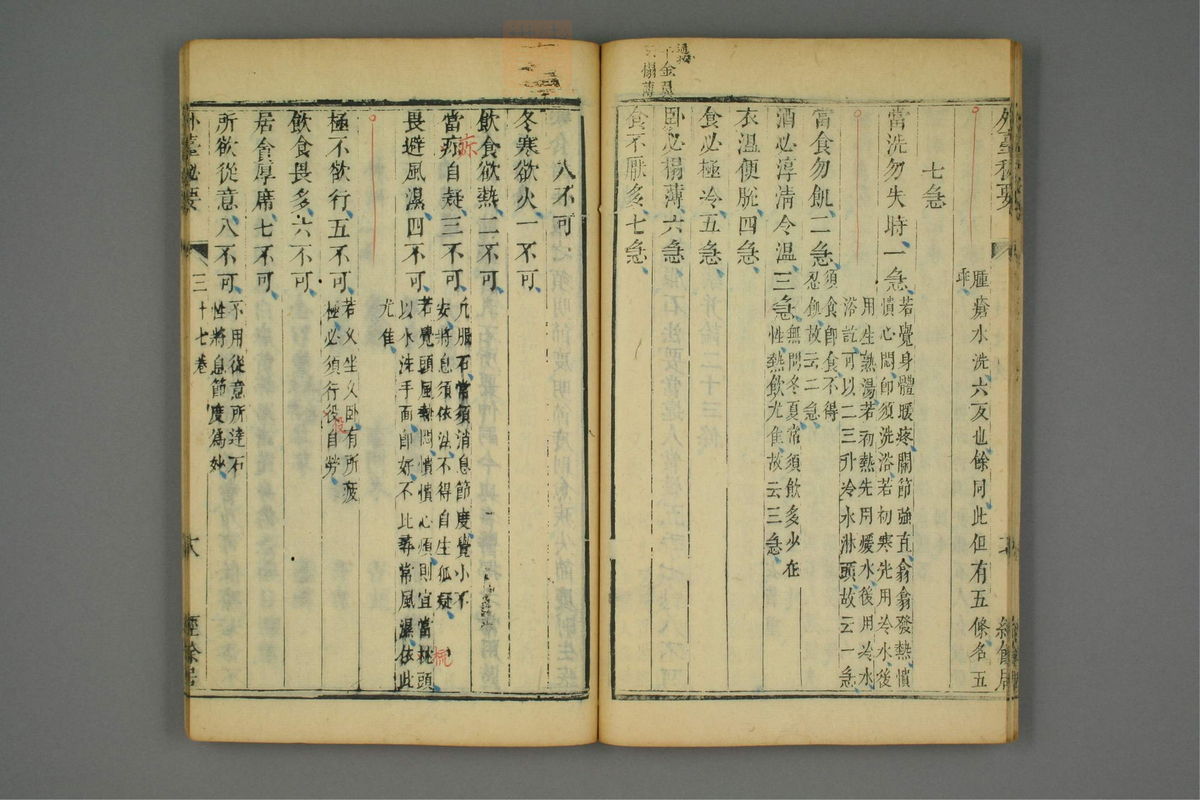 腫瘡水洗六友也餘同此但有五條名五
乖
七急
當洗勿失時一急
若覺身體暖疼關節強直翕翕發熱憒
憒心悶即須洗浴若初寒先用冷水後
用生熟湯若初熱先用煖水後用冷水
浴訖可以二三升冷水淋頭故云一急
當食勿飢二急
須食即食不得
忍飢故云二急
酒必淳清令温三急
無問冬夏常須飲多少在
性熱飲尤佳故云三急
衣温便脫四急
食必極冷五急
臥必榻薄六急
食不厭多七急
八不可
冬寒欲火一不可
飲食欲熱二不可
當疹自疑三不可
凢服石常須消息節度覺小不
安將息須依法不得自生狐疑
畏避風濕四不可
若覺頭風熱悶憒憒心煩則宜當梳頭
以水洗手面即好不比尋常風濕依此
尤佳
極不欲行五不可
若久坐久卧有所疲
極必須行役自勞
飲食畏多六不可
居貪厚席七不可
所欲從意八不可
不用從意所違石
性將息節度爲妙
外臺秘要
三十七卷
經餘居